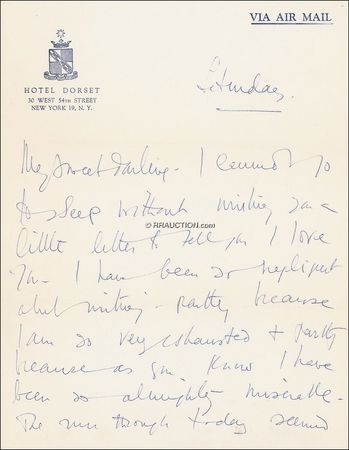 VIA AIR MAIL
HOTEL DORSET
30 WEST 54TH STREET
NEW YORK 19, N. Y.
Sunday.
My Sweet Darling - I cannot go
to sleep without writing you a
© RRAUCTION.com
little letter to tell you I love
you - I have been so negligent
about writing - partly because
I am so very exhausted & partly
because as you know I have
been so almighty miserable -
The run through today seemed